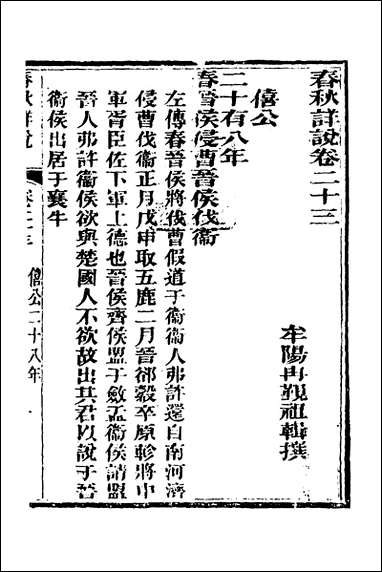 春秋詳說卷二十三
牟陽冉覲祖輯撰
僖公
二十有八年
春晉侯侵曹晉侯伐衞
左傳春晉侯將伐曹假道于衞衞人弗許還自南河濟
侵曹伐衞正月戊申取五鹿二月晉郤縠卒原軫將中
軍胥臣佐下軍上德也晉侯齊侯盟于斂盂衞侯請盟
晉人弗許衞侯欲與楚國人不欲故出其君以說于晉
衞侯出居于襄牛
春秋詳說
卷二十三 僖公二十八年 一